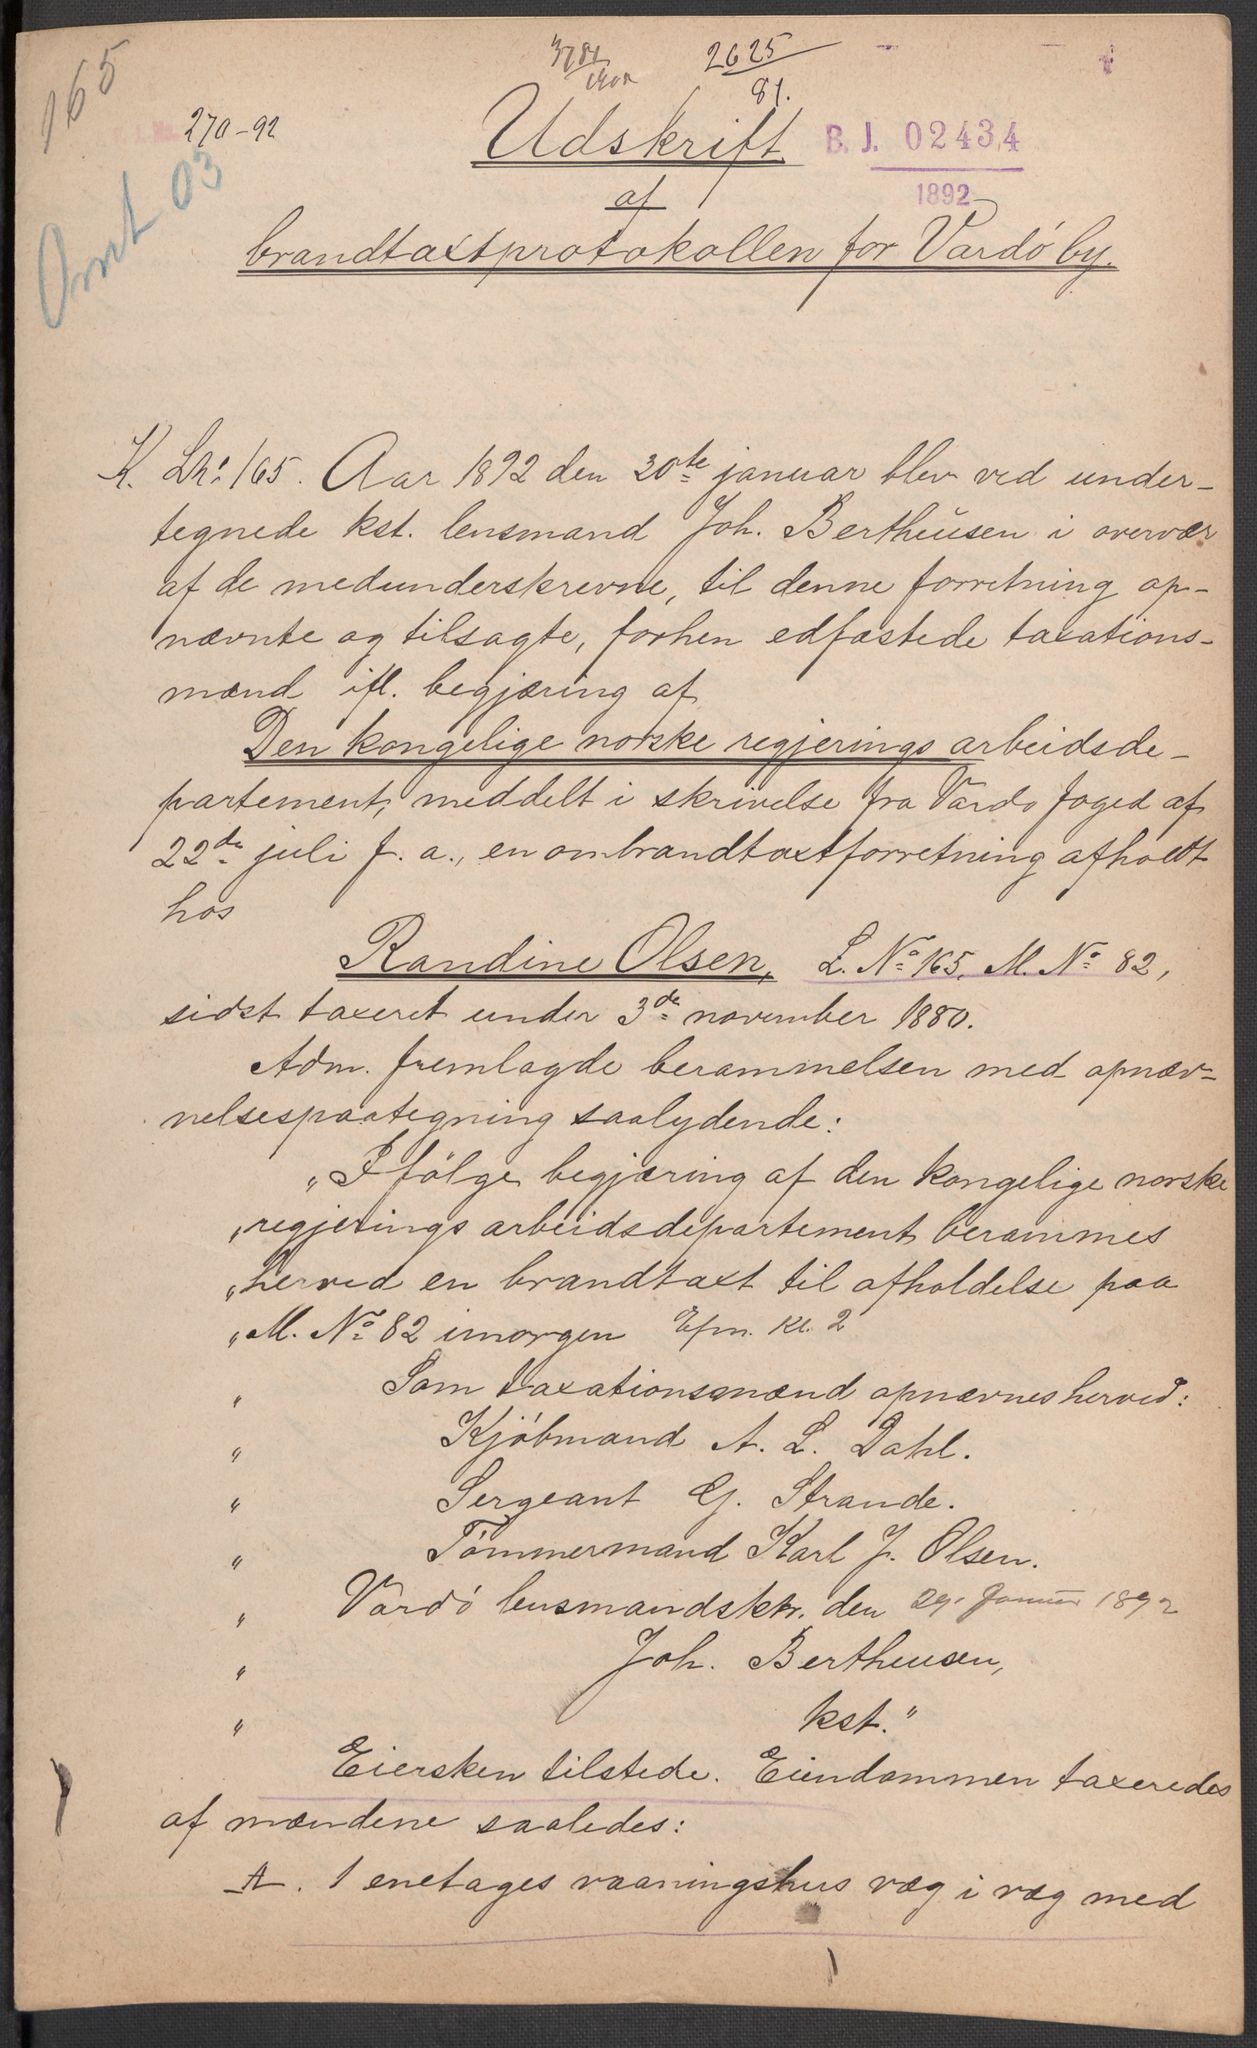 165
2625
81.
270-92
Udskrift
B. J. 02434
1892
af
Omt 03
brandtaxtprotokollen for Vardö by.
K. Lnº 165. Aar 1892 den 30te januar blev ved under-
tegnede kst. lensmand Joh. Bertheusen i overvær
af de medunderskrevne, til denne forretning op-
nævnte og tilsagte, forhen edfæstede taxations-
mænd ifl. begjæring af
Den kongelige norske regjerings arbeidsde-
partement, meddelt i skrivelse fra Vardö foged af
22de juli f. a., en ombrandtaxtforretning afholdt
hos
Randine Olsen, L. No 165, M. No 82,
sidst taxeret under 3de november 1880.
Adm. fremlagde berammelsen med opnæv-
nelsespaategning saalydende:
"I följge begjæring af den kongelige norske
"regjerings arbeidsdepartement berammes
"herved en brandtaxt til afholdelse paa
"M. No 82 imorgen Efm. Kl. 2
" Som taxationsmænd opnævnes herved:
" Kjöbmand A. L. Dahl.
" Sergeant G. Strande.
" Tömmermand Karl J. Olsen.
" Vardö lensmandsktr. den 29. Januar 1892
" Joh. Bertheusen,
" kst."
Eiersken tilstede. Eiendommen taxeredes
af mændene saaledes:
A. 1 enetages vaaningshus væg i væg med